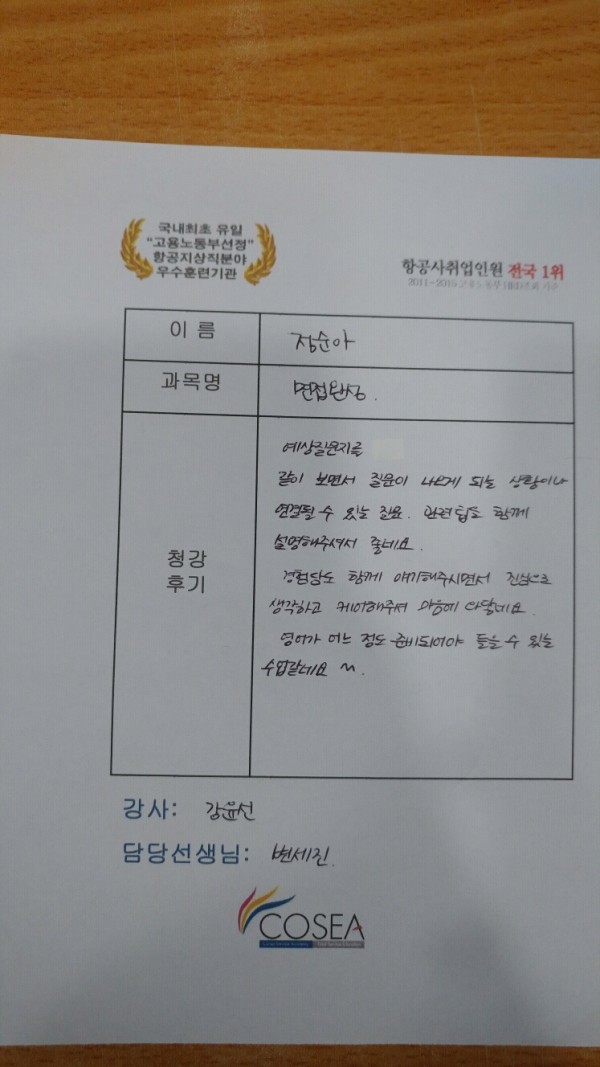 국내최초 유일
"고용노동부선정"
항공지상직분야
우수훈련기관
항공사취업인원 전국 1위
2011~2015 고용노동부
이 름
장순아
과목명
면접완성.
청강
후기
예상질문지를
같이 보면서 질문이 나오게 되는 상황이나
연결될 수 있는 질문. 관련팁도 함께
설명해주셔서 좋네요.
경험담도 함께 얘기해주시면서 진심으로
생각하고 케어해주셔 마음에 와닿네요.
영어가 어느 정도 준비되어야 들을 수 있는
수업같네요 ~.
강사: 강윤선
담당선생님: 변세진.
COSEA